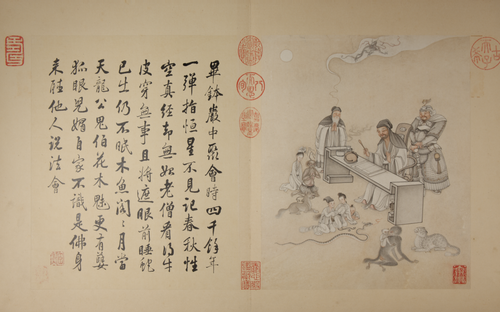 畢鉢巖中聚會時四千餘年
一彈指恒星不見記春秋性
空真經却無如老僧看得牛
皮穿無事且將遮眼前睡蛇
已出仍不眠木魚閣〻月當
天龍公鬼伯花木魅更有
狐眼兒媚自家不識是佛身
来聽他人說法會